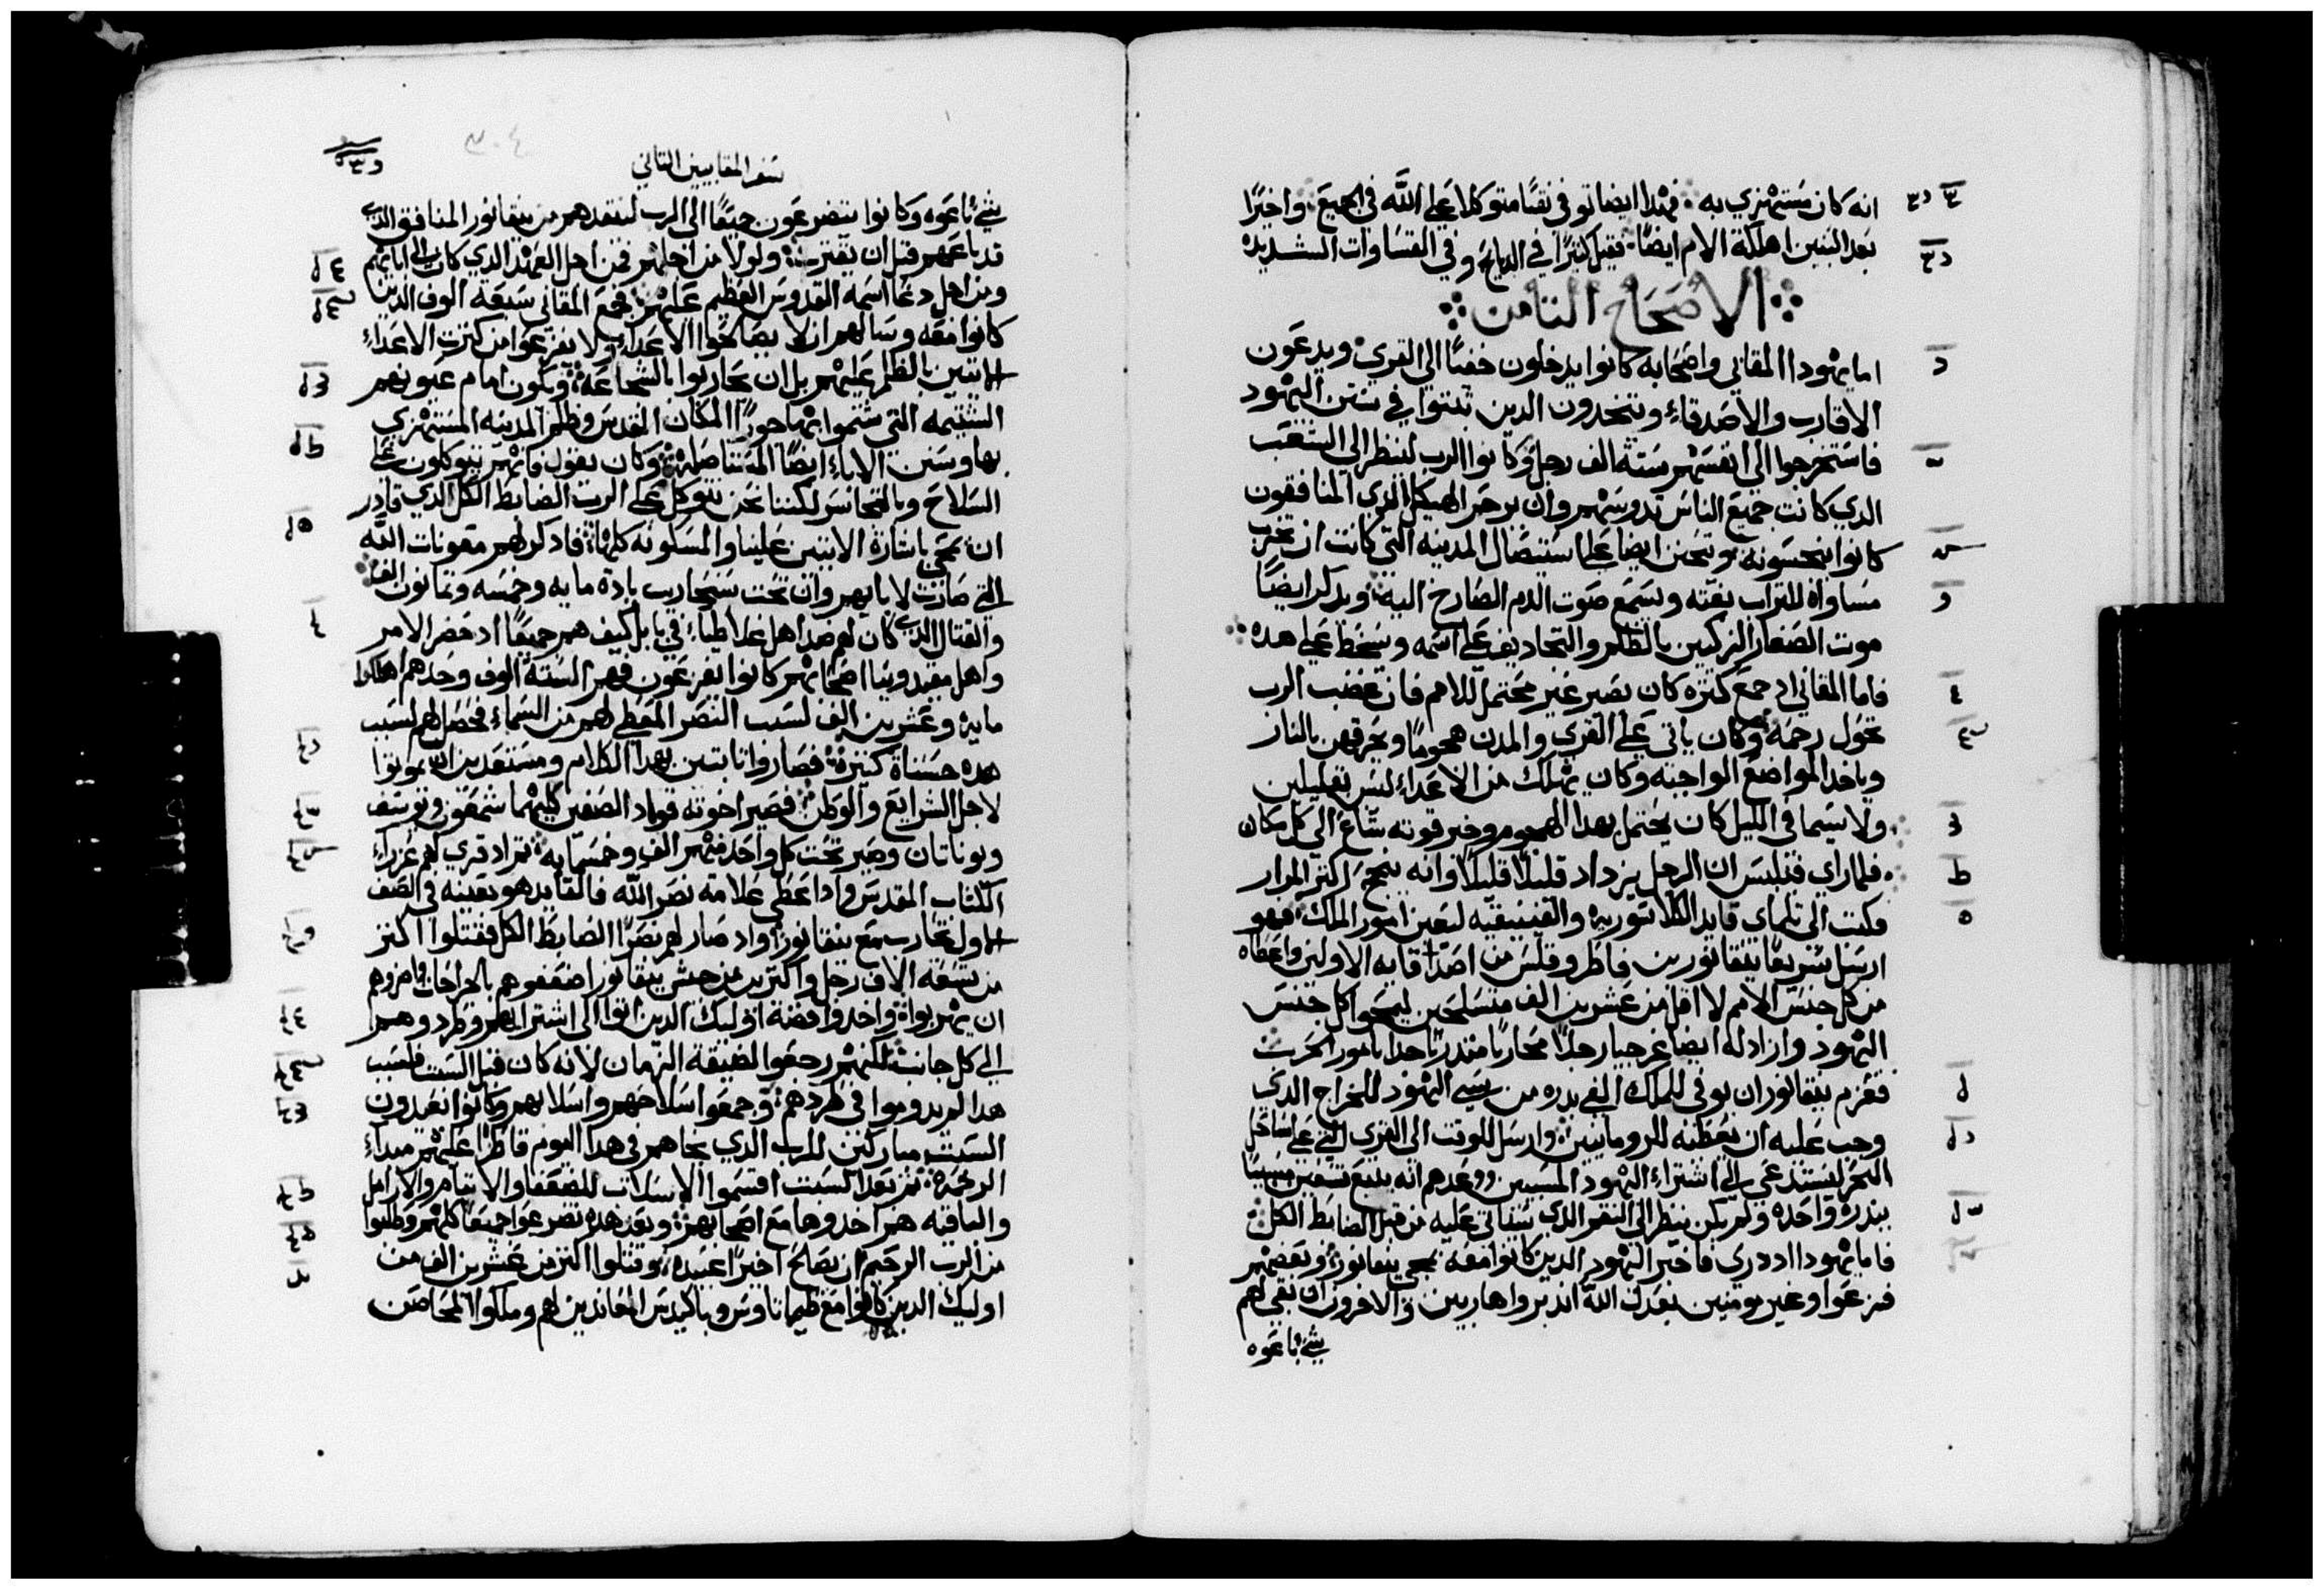 انه كان مستهزي به فهدا ايضا توفي نقيًا متوكلا علي الله في الجميع واخيرًا
بعد البنين اهلكة الام ايضًا فقيل كثيرًا في الدبايح وفي القساوات الشديده
الاصحاح التامن
اما يهودا المقابي واصحابه كانوا يدخلون خفيًا الي القري ويدعون
الاقارب والاصدقاء ويتخدون الدين تبتوا في سنن اليهود
فاستخرجوا الي انفسهم ستة الف رجل وكانوا الرب لينظر الي الشعب
الدي كانت جميع الناس تدوسهم وان يرحم الهيكل الدي المنافقون
كانوا ينجسونه ويتحنن ايضا علي استيصال المدينه التي كانت ان تخرب
مساواه للتراب بغته ويسمع صوت الدم الصارخ اليه ويدكر ايضًا
موت الصغار الزكيين بالظلم والتجاديف علي اسمه ويسخط علي هده
فاما المقابي اد جمع كثره كان يصير غير محتمل للامم فان غضب الرب
تحول رحمه وكان ياتي علي القري والمدن هجومًا ويحرقهن بالنار
وياخد المواضع الواجبه وكان يهلك من الاعداء ليس بقليلين
ولاسيما في الليل كان يحتمل بهدا الهجوم وخبر قوته شاع الي كل مكان
فلما راي فيلبس ان الرجل يزداد قليلًا قليلًا وانه ينجح اكثر المرار
فكتب الي تلماي قايد الكلاسوريه والفينيقيه ليعين امور الملك فهو
ارسل سريعًا نيقانور بن فاطروقلس من اصدقايه الاولين واعطاه
من كل جنس الامم لا اقل من عشرين الف متسلحين ليمحوا كل جنس
اليهود وازاد له ايضا غرجيا رجلًا محاربًا متدربًا جدا بامور الحرب
فعزم نيقانور ان يوفي للملك الفي بدره من سبي اليهود للخراج الدي
وجب عليه ان يعطيه للرومانيين وارسل للوقت الي القري التي علي ساحل
البحر ليستدعي الي اشتراء اليهود المسبيين ووعدهم انه يبيع تسعين مسبيًا
ببدرة واحده ولم يكن ينظر الي النقم الدي ستاتي عليه من قبل الضابط الكل
فاما يهودا اد دري فاخبر اليهود الدين كانوا معه بمجي نيقانور وبعضهم
فزعوا وغير مومنين بعدل الله اندبروا هاربين والاخرون ان بقي لهم
شي باعوه
سفر المقابيين التاني
شي باعوه وكانوا يتضرعون جميعًا الي الرب لينقدهم من نيقانور المنافق الدي
قد باعهم قبل ان يقترب ولولا من اجلهم فمن اجل العهد الدي كان الي ابايهم
ومن اجل دعا اسمه القدوس العظيم عليهم فجمع المقابي سبعة الوف الدين
كانوا معه وسالهم ان لا يصالحوا الاعداء ولا يفزعوا من كثرت الاعداء
الاتيين بالظلم عليهم بل ان يحاربوا بالشجاعه ويكون امام عيونهم
الشتيمه التي شتموا بها جورًا المكان المقدس وظلم المدينه المستهزي
بها وسنن الاباء ايضًا المستاصله وكان يقول فانهم يتوكلون علي
السلاح وبالتجاسر لكننا نحن نتوكل علي الرب الضابط الكل الدي قادر
ان يمحي باشارة الاتيين علينا والمسكونه كلها فادكرلهم معونات الله
التي صارت لابايهم وان تحت سنحاريب بادة مايه وخمسه وتمانون الف
والقتال الدي كان لهم ضد اهل غلاطيا في بابل كيف هم جميعًا اد حضر الامر
واهل مقيدونيا اصحابهم كانوا يفزعون فهم الستة الوف وحدهم اهلكوا
مايه وعشرين الف لسبب النصر المعطي لهم من السماء فحصل لهم لسبب
هده حسناة كثيرة فصاروا تابتين بهدا الكلام ومستعدين ان يموتوا
لاجل الشرايع والوطن فصير اخوته قواد الصفين كليهما شمعون ويوسف
ويوناتان وصير تحت كل واحد منهم الف وخمسمايه تم اد قري لهم عزرا
الكتاب المقدس واد اعطي علامة نصر الله فالقايد هو بعينه في الصف
الاول يحارب مع نيقانور واد صار لهم نصرًا الضابط الكل فقتلوا اكثر
من تسعه الاف رجل واكثر من جيش نيقانور اضعفوهم بالجراحات وامروهم
ان يهربواة واخدوا فضة اوليك الدين اتوا الي اشترايهم وطردوهم
الي كل جانب لكنهم رجعوا لضيقة الزمان لانه كان قبل السبت فلسبب
هدا لم يدوموا في طردهم وجمعوا سلاحهم واسلابهم وكانوا يعيدون
السبت مباركين للرب الدي نجاهم في هدا اليوم قاطرًا عليهم مبداء
الرحمة تم بعد السبت اقتسموا الاسلاب للضعفا والايتام والارامل
والباقيه هم اخدوها مع اصحابهم وبعد هده تضرعوا جميعًا كلهم وطلبوا
من الرب الرحيم ان يصالح اخيرًا عبيده وقتلوا اكثر من عشرين الف من
اوليك الدين كانوا مع طيماتاوس وباكيدس المعاندين لهم وملكوا المحاصن